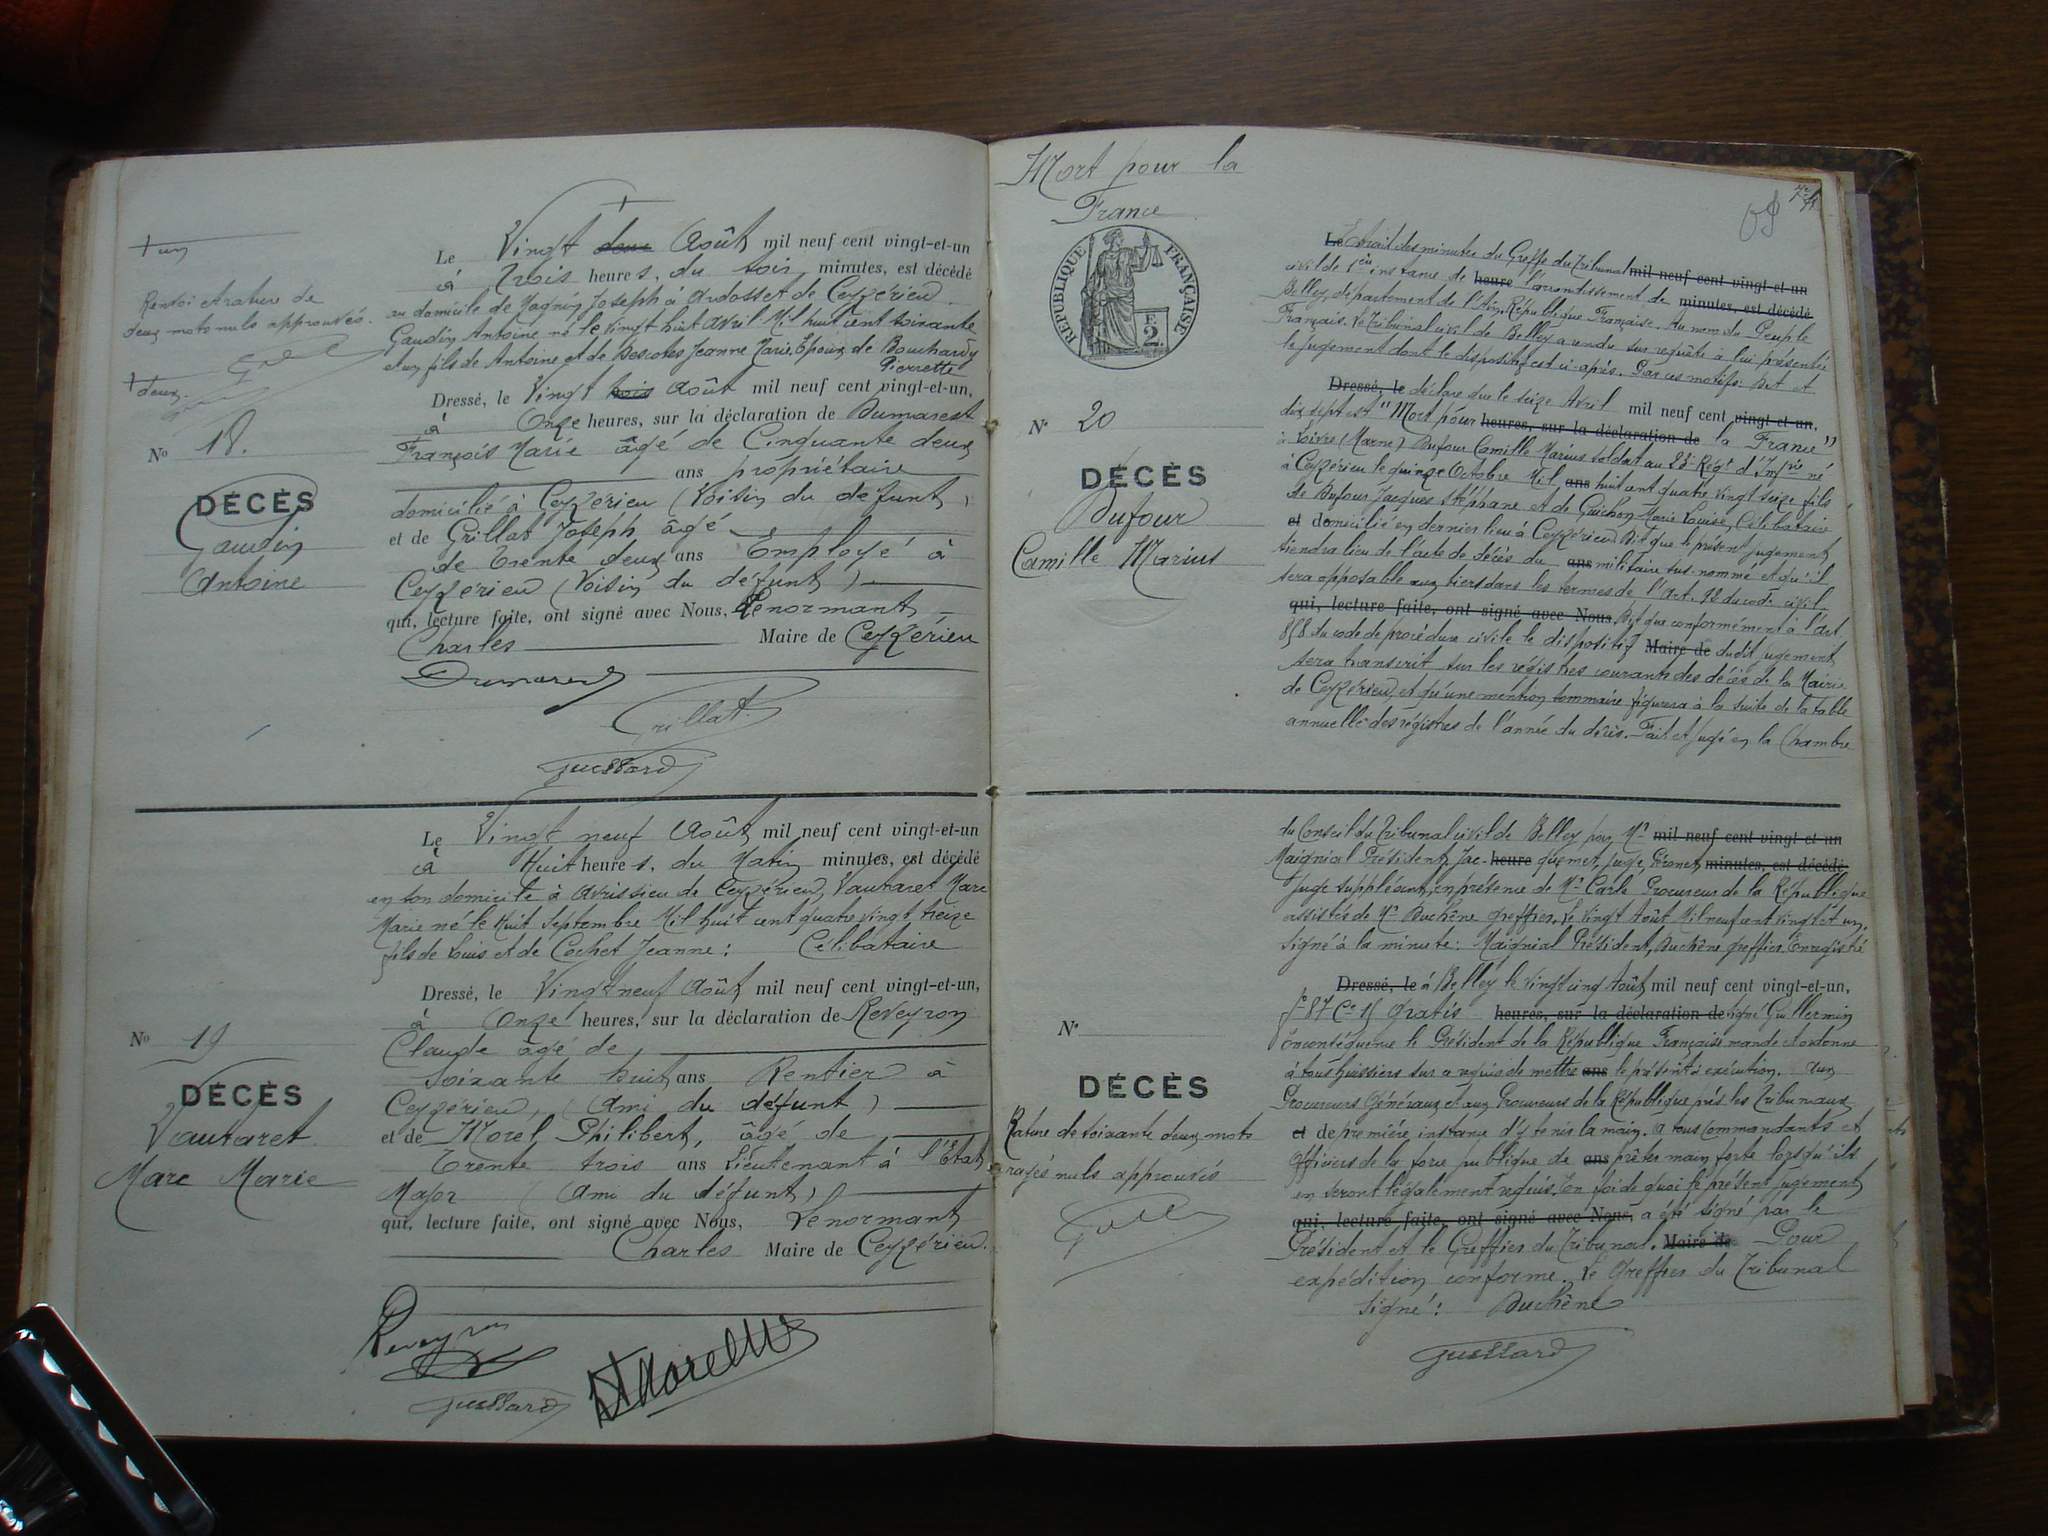 + un
Renvoi et rature de
deux mots nuls approuvés.
+ deux
No 18.
DÉCÈS
Gaudin
Antoine
Le Vingt deux Août mil neuf cent vingt-et-un
à Trois heures, du soir, minutes, est décédé
au domicile de Magnin Joseph à Ardosset de Ceyzérieu
Gaudin Antoine né le vingt huit avril Mil huit cent soixante
et un fils de Antoine et de Descotes Jeanne Marie, Epoux de Bouchardy
Pierrette
Dressé, le Vingt trois Août mil neuf cent vingt-et-un,
à Onze heures, sur la déclaration de Dumarest
François Marie âgé de Cinquante deux
ans propriétaire
domicilié à Ceyzérieu (Voisin du défunt)
et de Grillat Joseph âgé
de Trente deux ans Employé à
Ceyzérieu (Voisin du défunt)
qui, lecture faite, ont signé avec Nous, Lenormant
Charles Maire de Ceyzérieu
Dumarest
Grillat
No 19
DÉCÈS
Vautaret
Marc Marie
Le Vingt neuf Août mil neuf cent vingt-et-un
à Huit heures, du Matin minutes, est décédé
en son domicile à Avrissieu de Ceyzérieu, Vautaret Marc
Marie né le Huit Septembre Mil huit cent quatre vingt treize
fils de Louis et de Cochet Jeanne : Célibataire
Dressé, le Vingt neuf Août mil neuf cent vingt-et-un,
à Onze heures, sur la déclaration de Reveyron
Claude âgé de
Soixante huit ans Rentier à
Ceyzérieu, (Ami du défunt)
et de Morel Philibert, âgé de
Trente trois ans Lieutenant à l'Etat
Major (Ami du défunt)
qui, lecture faite, ont signé avec Nous, Lenormant
Charles Maire de Ceyzérieu.
Reveyron
Morel
Mort pour la
France
RÉPUBLIQUE FRANÇAISE
F.
2.
No 20
DÉCÈS
Dufour
Camille Marius
Le Extrait des minutes du Greffe du Tribunal mil neuf cent vingt-et-un
civil de 1ère instance de heure l'arrondissement de minutes, est décédé
Belley, département de l'Ain, République Française. Au nom du Peuple
Français. Le Tribunal civil de Belley a rendu sur requête à lui présentée
le jugement dont le dispositif est ci-après. Par ces motifs: Dit et
Dressé, le déclare que le seize Avril mil neuf cent vingt-et-un,
dix sept est "Mort pour heures, sur la déclaration de la France"
à Loivre (Marne) Dufour Camille Marius soldat au 23e Régt d'Infrie né
à Ceyzérieu le quinze Octobre Mil ans huit cent quatre vingt seize fils
de Dufour Jacques Stéphane et de Guichon Marie Louise, Célibataire
et domicilié en dernier lieu à Ceyzérieu Dit que le présent jugement
tiendra lieu de l'acte de décès du ans militaire sus-nommé et qu'il
sera opposable aux tiers dans les termes de l'Art. 92 du code civil
qui, lecture faite, ont signé avec Nous Dit que conformément à l'art
858 du code de procédure civile le dispositif Maire de dudit jugement
sera transcrit sur les régistres courants des décès de la Mairie
de Ceyzérieu, et qu'une mention sommaire figurera à la suite de la table
annuelle des régistres de l'année du décès. Fait et jugé en la Chambre
No
DÉCÈS
Rature de soixante deux mots
rayés nuls approuvés
du Conseil du Tribunal civil de Belley par Mr mil neuf cent vingt et un
Maignial Président, Jac- heure quemet, Juge, minutes, est décédé
Juge suppléant, en présence de Mr Carle Procureur de la République
assistés de Mr Duchêne greffier. Le vingt Août Mil neuf cent vingt et un.
Signé à la minute: Maignial Président, Duchêne greffier. Enregistré
Dressé, le à Belley le vingt cinq Août mil neuf cent vingt-et-un,
fo 87 Ce 15 Gratis heures, sur la déclaration de signé Guillermin
En conséquence le Président de la République Française mande et ordonne
à tous huissiers sur ce requis de mettre ans le présent à exécution. Aux
Procureurs Généraux et aux Procureurs de la République près les Tribunaux
et de première instance d'y tenir la main. A tous Commandants et
Officiers de la force publique de ans prêter main forte lorsqu'ils
en seront légalement requis. En foi de quoi le présent jugement
qui, lecture faite, ont signé avec Nous, a été signé par le
Président et le Greffier du Tribunal. Maire de Pour
expédition conforme. Le Greffier du Tribunal
Signé : Duchêne